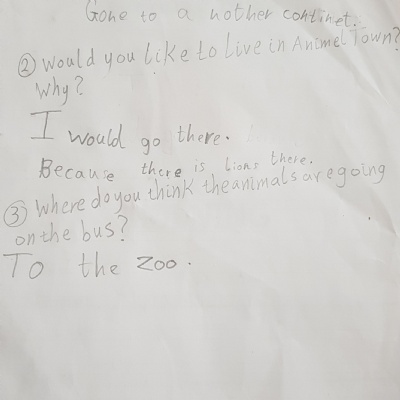 Gone to a nother continet.
② would you like to live in Animel Town?
Why?
I would go there.
Because there is lions there.
③ Where do you think the animals are going
on the bus?
To the zoo.